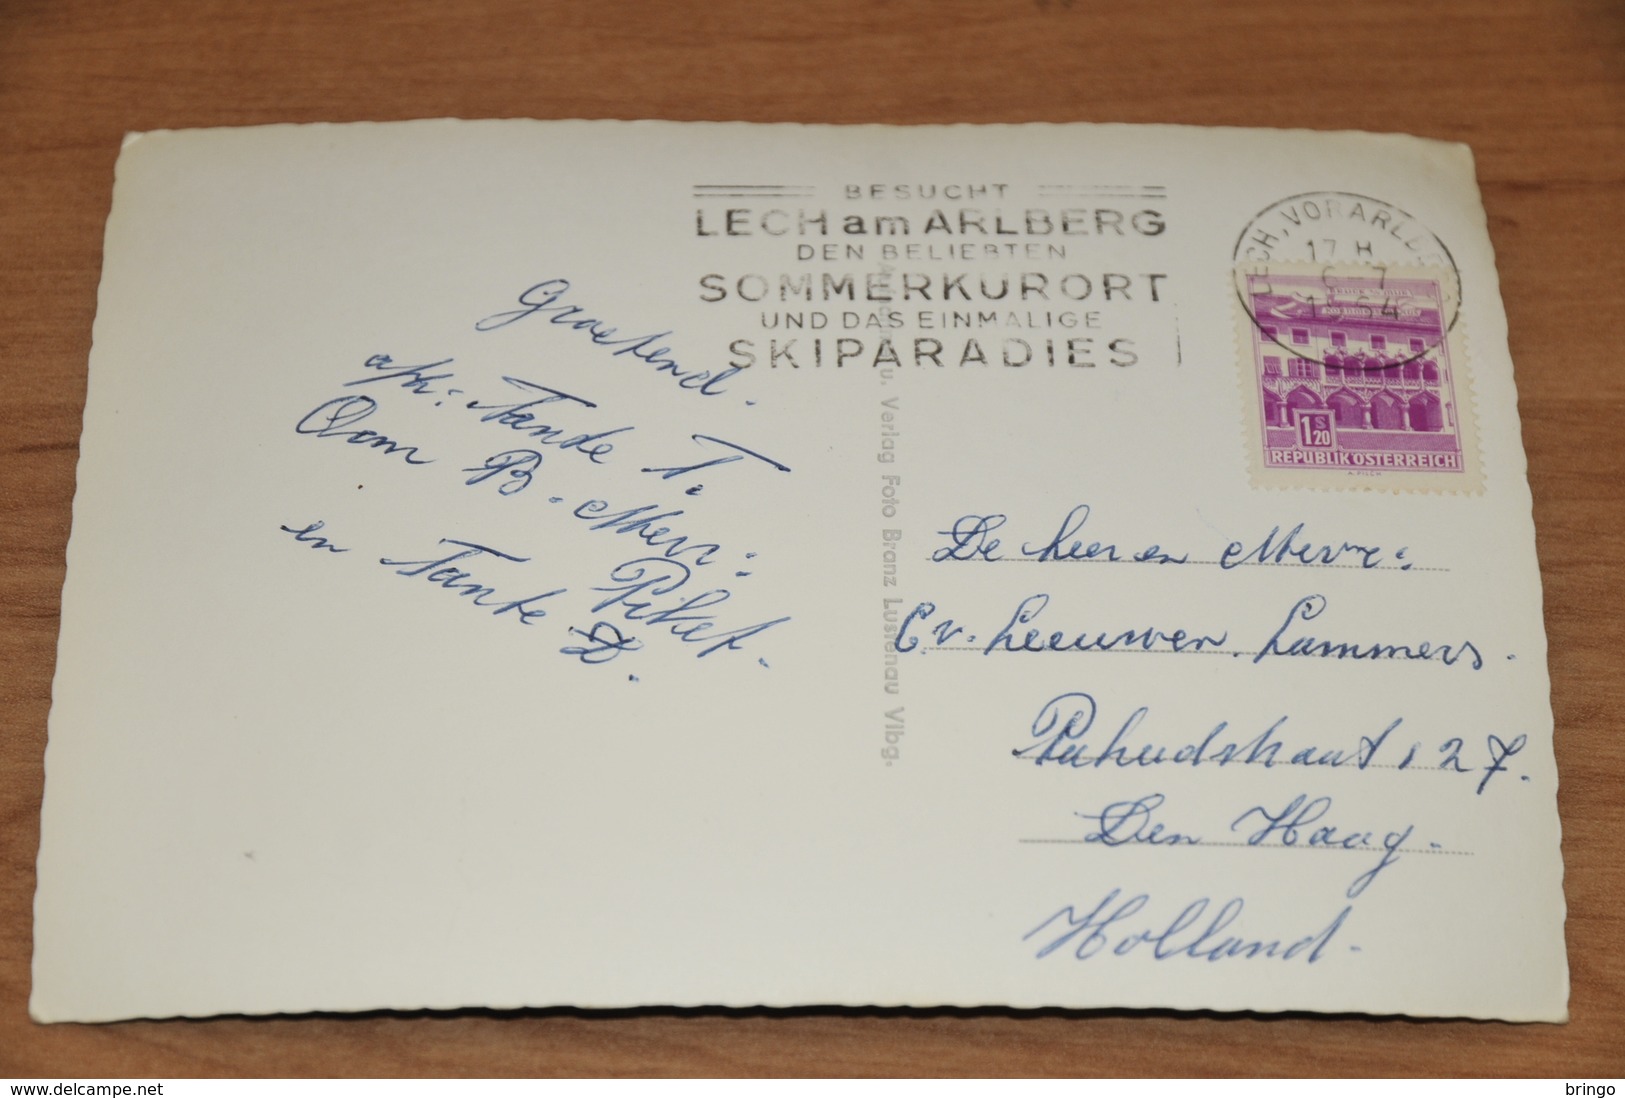 BESUCHT
LECH am ARLBERG
DEN BELIEBTEN
SOMMERKURORT
UND DAS EINMALIGE
SKIPARADIES
LECH, VORARLBERG
17 H
6-7
1964
1 S 20
REPUBLIK ÖSTERREICH
A. PILCH
Groetend.
afz: Tande T.
Oom B. Mevr:
en Tante Piket.
D.
u. Verlag Foto Branz Lustenau Vlbg.
De heer en Mevr:
C v. Leeuwen. Lammers.
Pahudstraat 127.
Den Haag.
Holland.
www.delcampe.net
bringo